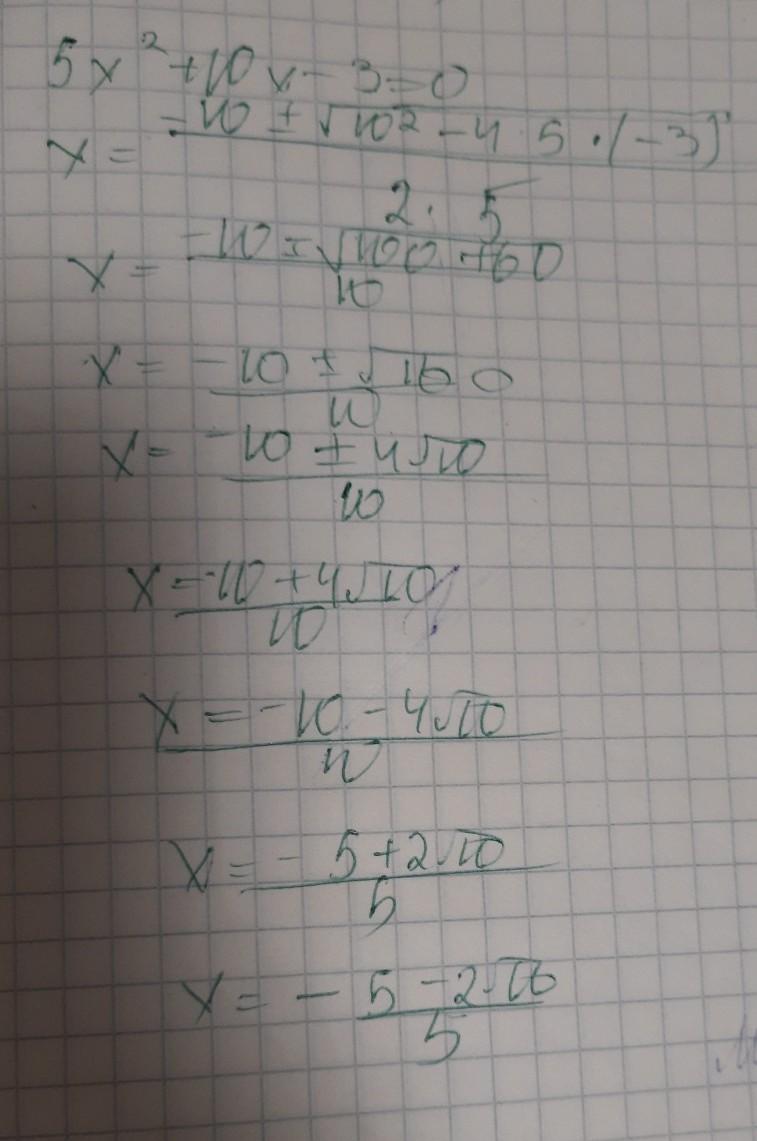 5x²+10x-3=0
x = (-10 ± √(10² - 4 · 5 · (-3)))/(2 · 5)
x = (-10 ± √(100 + 60))/10
x = (-10 ± √160)/10
x = (-10 ± 4√10)/10
x = (-10 + 4√10)/10
x = (-10 - 4√10)/10
x = (-5 + 2√10)/5
x = - (5 - 2√10)/5